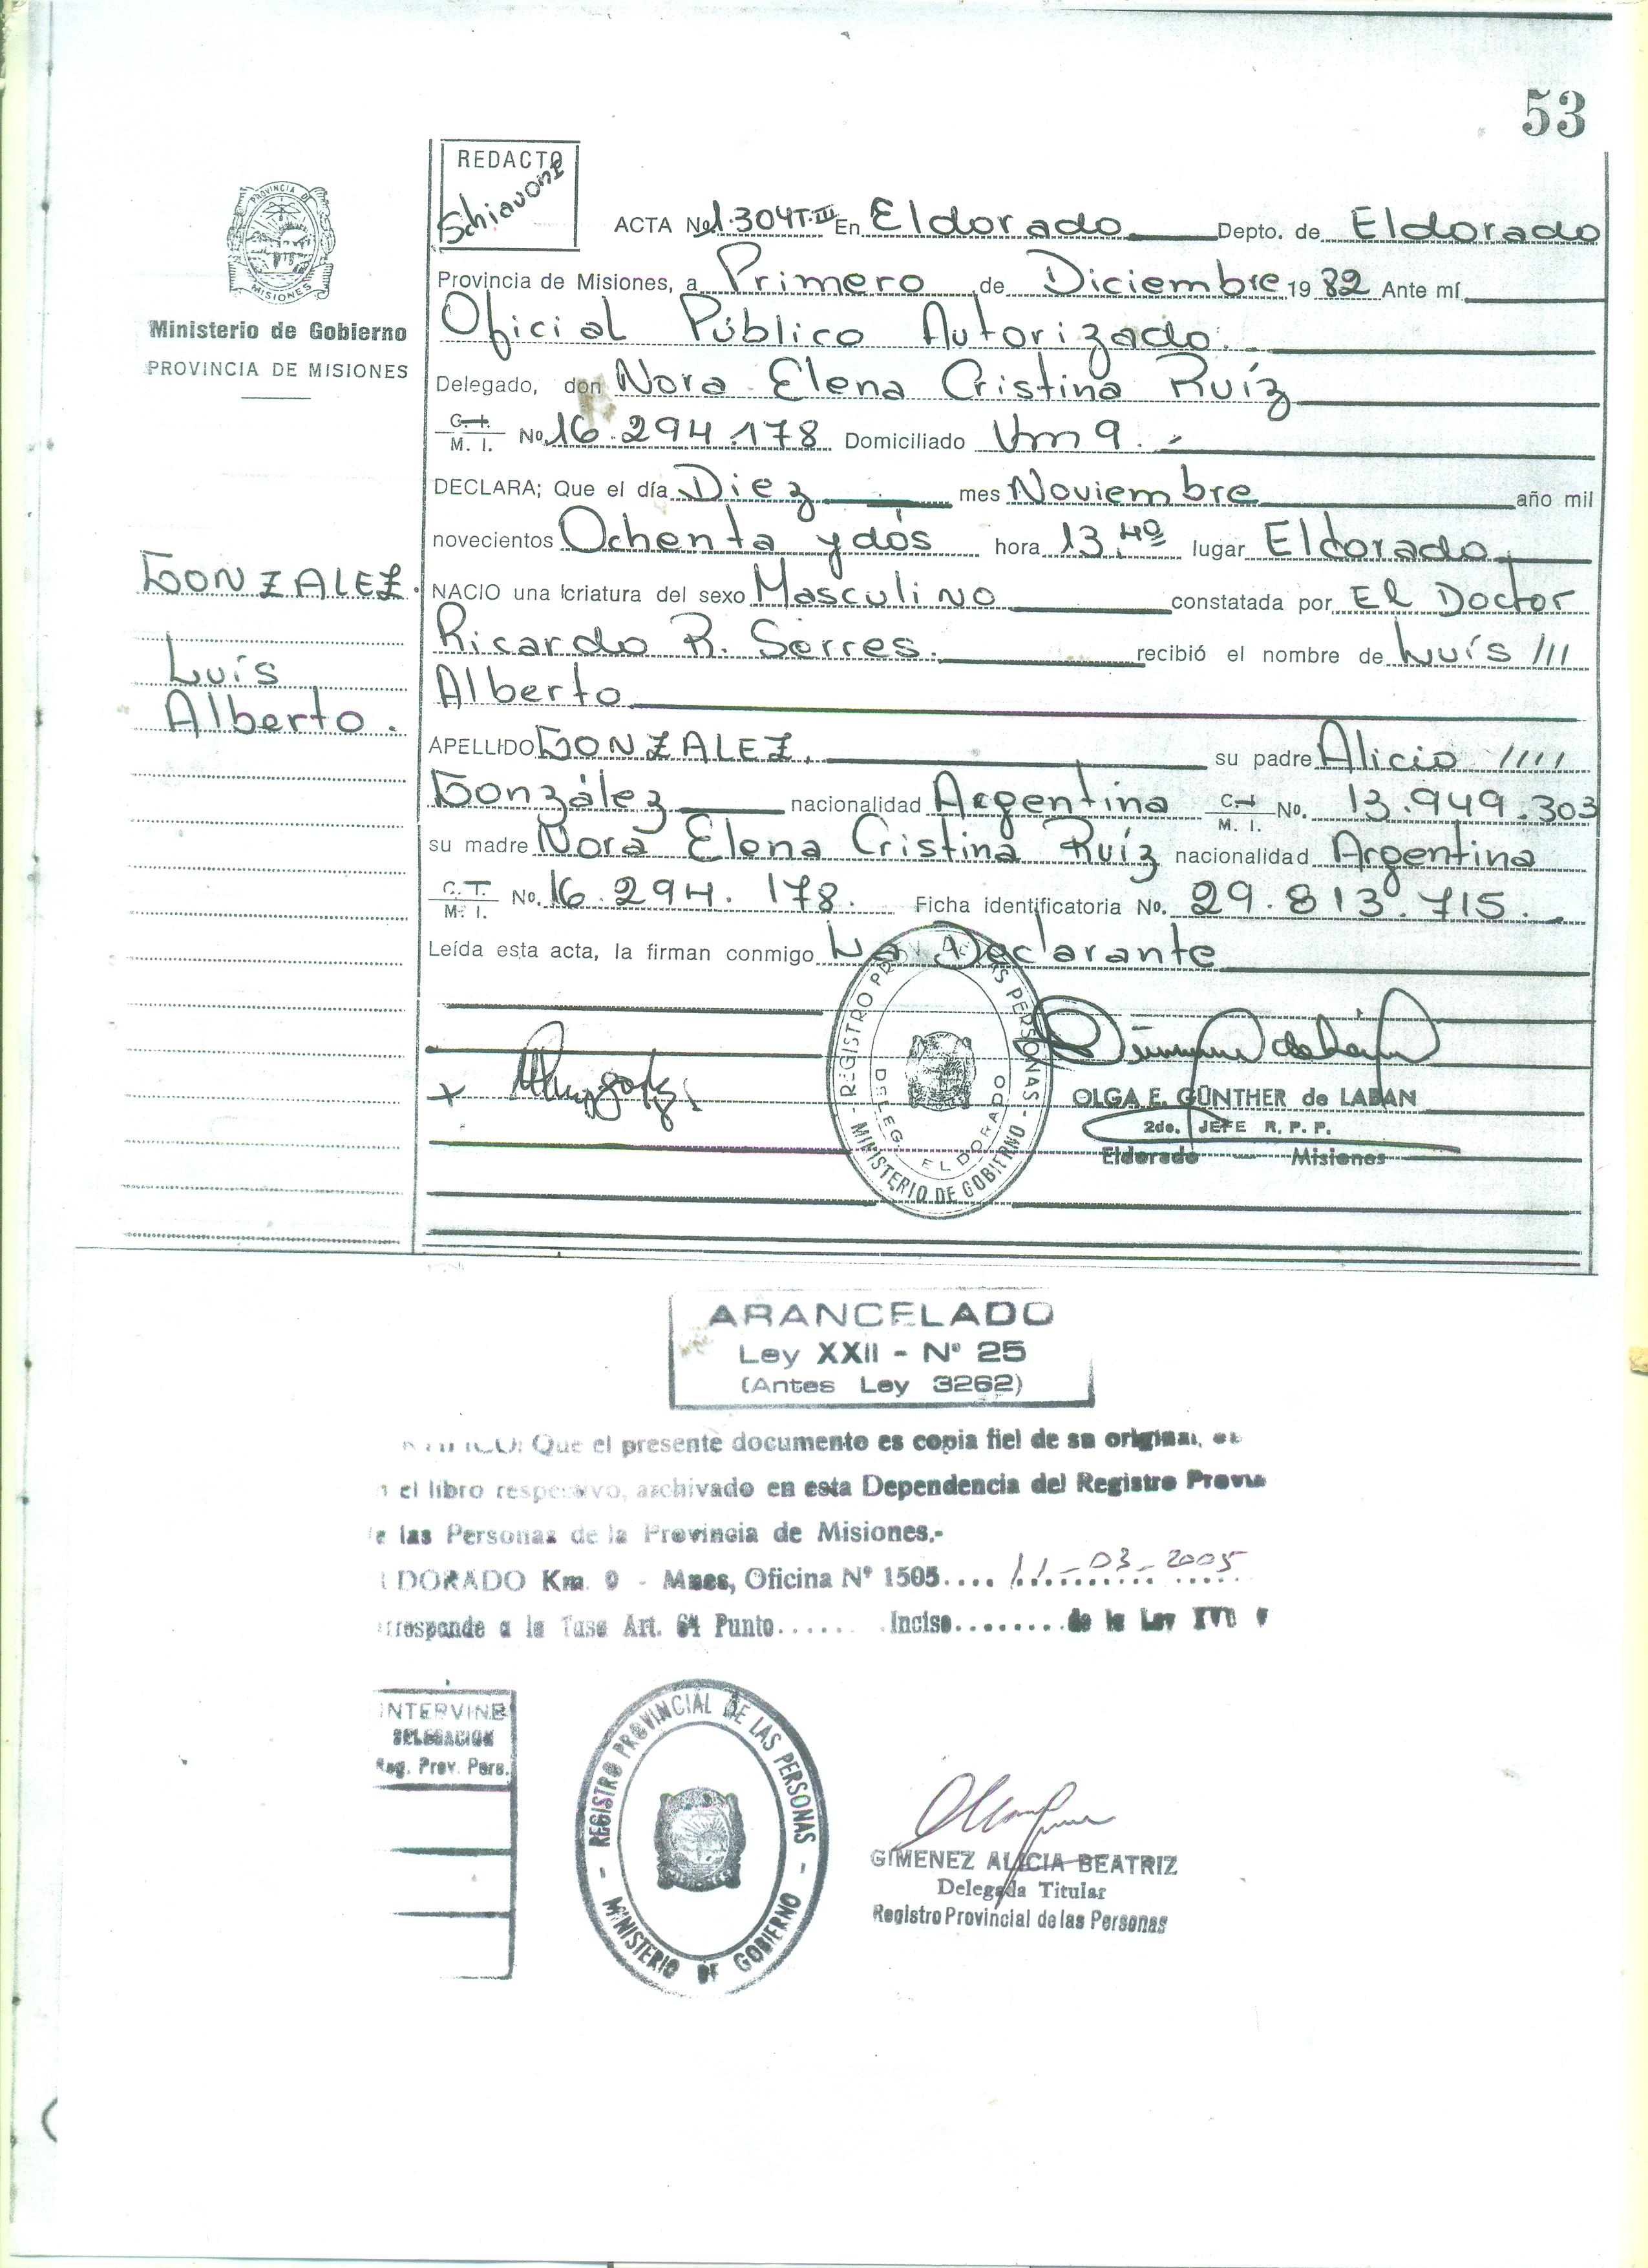 53
REDACTO
Schiavone
PROVINCIA DE
MISIONES
Ministerio de Gobierno
PROVINCIA DE MISIONES
ACTA No 1.304 T.III En Eldorado Depto. de Eldorado
Provincia de Misiones, a Primero de Diciembre 19 82 Ante mí
Oficial Público Autorizado.
Delegado, don Nora Elena Cristina Ruíz
C.I. M. I. No. 16.294.178 Domiciliado Km 9.
DECLARA; Que el día Diez mes Noviembre año mil
novecientos Ochenta y dós hora 13.40 lugar Eldorado
GONZALEZ.
NACIO una criatura del sexo Masculino constatada por El Doctor
Ricardo R. Serres. recibió el nombre de Luís ///
Luís
Alberto
Alberto.
APELLIDO GONZALEZ. su padre Alicio ////
González nacionalidad Argentina C.I. M. I. No. 13.949.303
su madre Nora Elena Cristina Ruíz nacionalidad Argentina
C.T. M. I. No. 16.294.178. Ficha identificatoria No. 29.813.715.
Leída esta acta, la firman conmigo La Declarante
REGISTRO PROV. DE LAS PERSONAS - MINISTERIO DE GOBIERNO -
DELEG. ELDORADO
OLGA E. GÜNTHER de LABAN
2do. JEFE R. P. P.
Eldorado — Misiones
ARANCELADO
Ley XXII - Nº 25
(Antes Ley 3262)
Que el presente documento es copia fiel de su original,
el libro respectivo, archivado en esta Dependencia del Registro
las Personas de la Provincia de Misiones.-
DORADO Km. 9 - Mnes, Oficina Nº 1505.... 11-03-2005
rresponde a la Tasa Art. 64 Punto...... Inciso........ de la Ley
INTERVINE
DELEGACION
Reg. Prov. Pers.
REGISTRO PROVINCIAL DE LAS PERSONAS
- MINISTERIO DE GOBIERNO -
GIMENEZ ALICIA BEATRIZ
Delegada Titular
Registro Provincial de las Personas